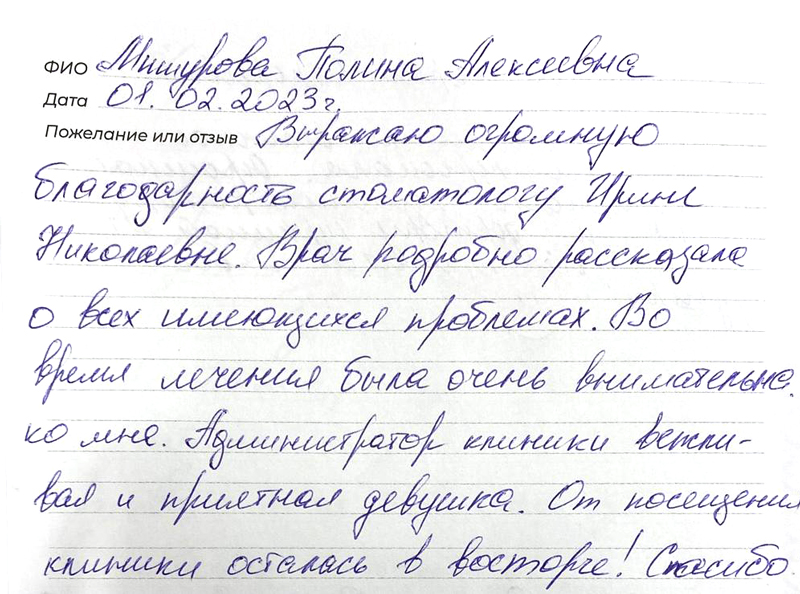 ФИО Мишурова Полина Алексеевна
Дата 01. 02. 2023г.
Пожелание или отзыв Выражаю огромную
благодарность стоматологу Ирине
Николаевне. Врач подробно рассказала
о всех имеющихся проблемах. Во
время лечения была очень внимательна
ко мне. Администратор клиники вежли-
вая и приятная девушка. От посещения
клиники осталась в восторге! Спасибо